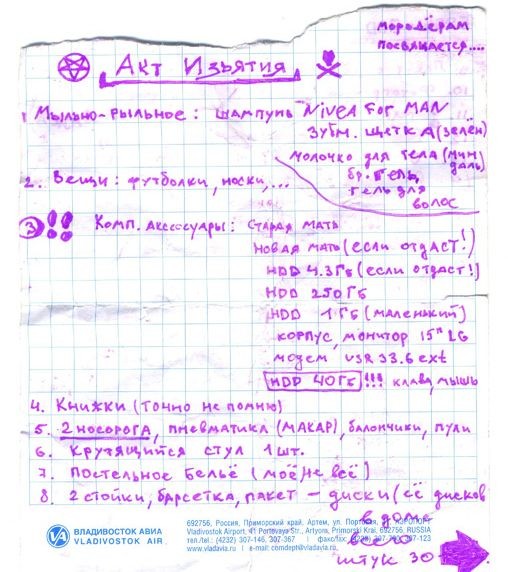 мородёрам
посвящается....
Акт Изъятия
1 Мыльно-рыльное: шампунь Nivea For MAN
зубн. щетка (зелён)
молочко для тела (миндаль)
бр. гель
гель для
волос
2. Вещи: футболки, носки,...
3 !! Комп. аксессуары: старая мать
новая мать (если отдаст!)
HDD 4.3Гб (если отдаст!)
HDD 250Гб
HDD 1Гб (маленький)
корпус, монитор 15" LG
модем USR 33.6 ext
HDD 40Гб !!! клава, мышь
4. Книжки (точно не помню)
5. 2 носорога, пневматика (МАКАР), балончики, пули
6. Крутящийся стул 1 шт.
7. Постельное бельё (моё, не всё)
8. 2 стойки, барсетка, пакет – диски (её дисков
в доме
всего
штук 30
ВЛАДИВОСТОК АВИА
VLADIVOSTOK AIR
692756, Россия, Приморский край, Артем, ул. АЭРОПОРТ
Vladivostok Airport, 41 Portovaya Str., Artyom, Primorski Krai, 692756, RUSSIA
тел./tel.: (4232) 307-146, 307-367 факс/fax: (4232)
www.vladavia.ru e-mail: comdept@vladavia.ru